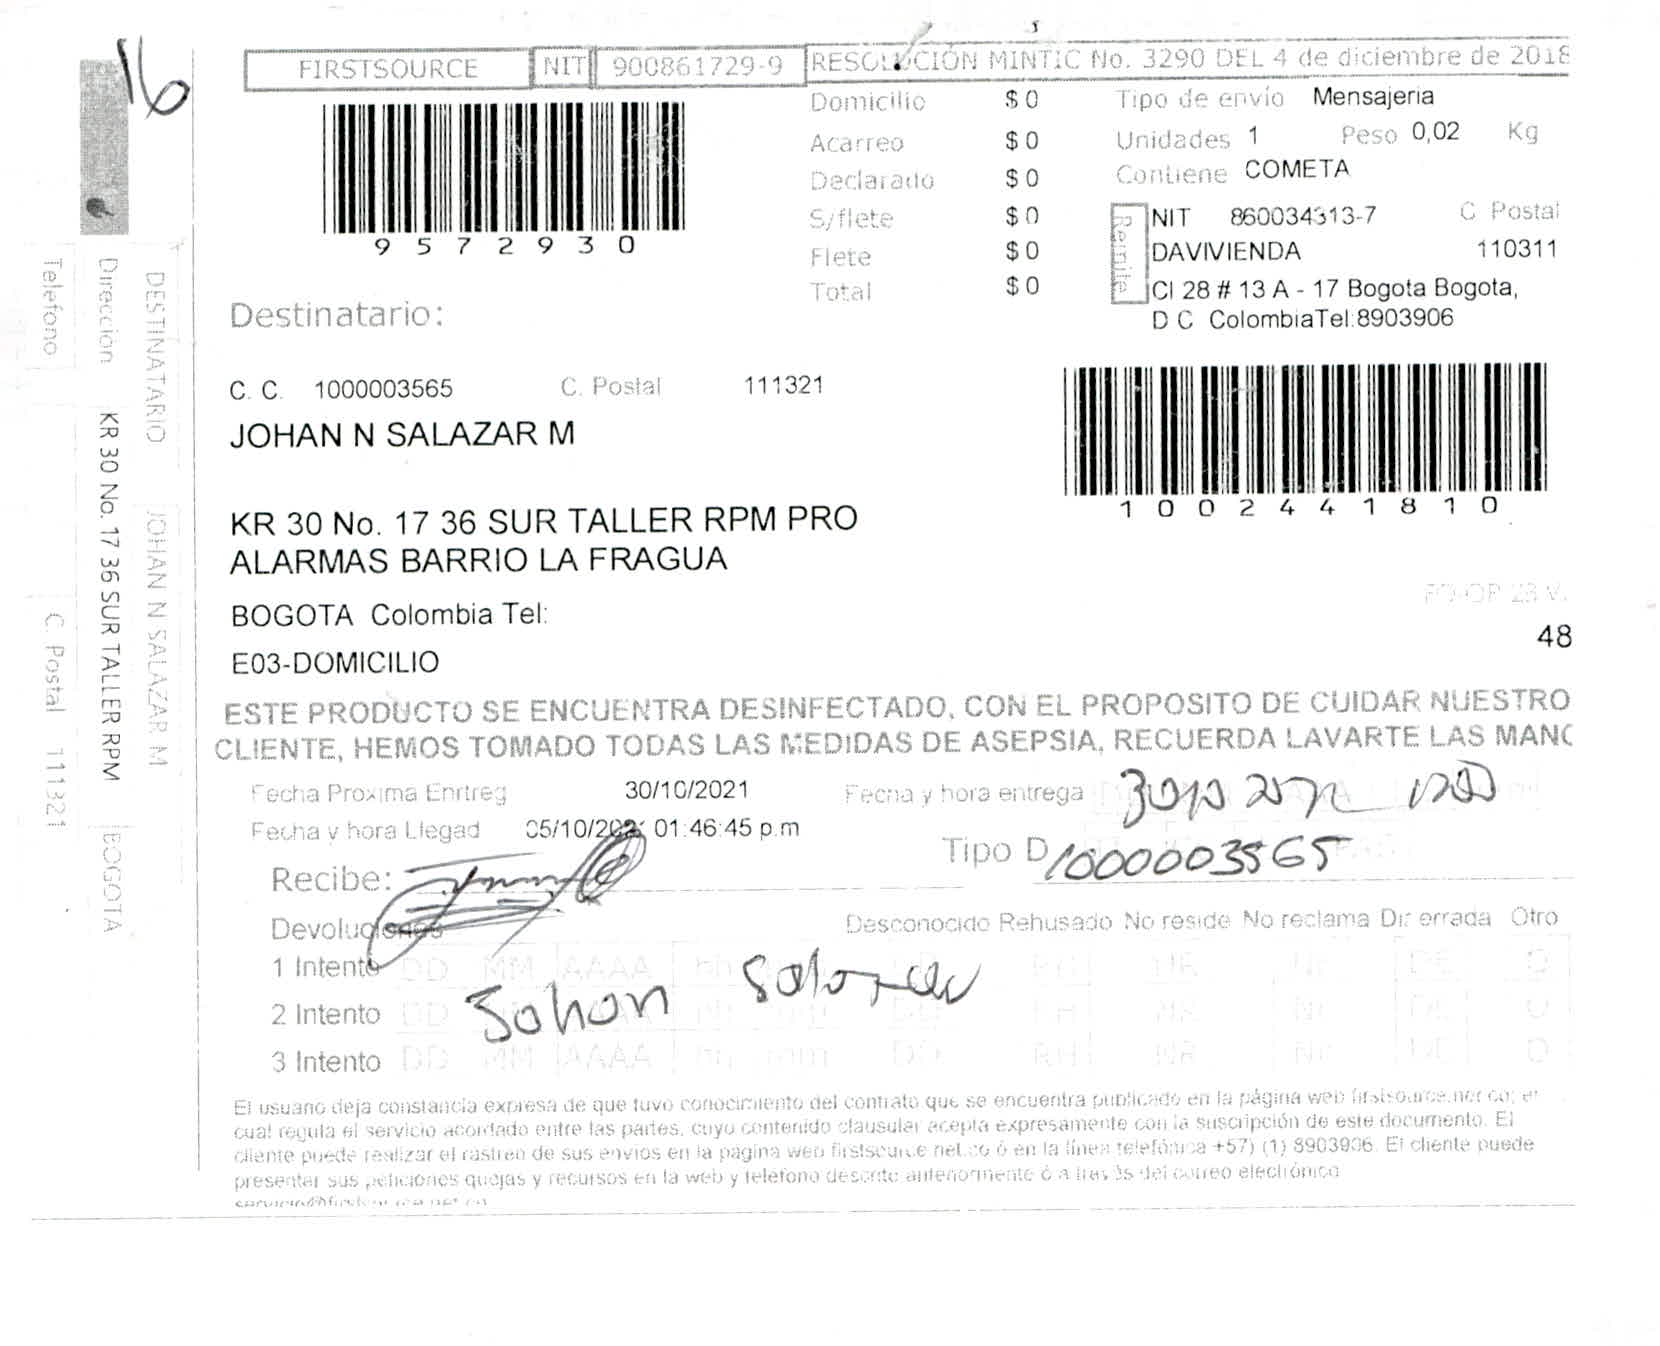 16
FIRSTSOURCE NIT 900861729-9 RESOLUCIÓN MINTIC No. 3290 DEL 4 de diciembre de 2018
9572930
Domicilio $ 0
Acarreo $ 0
Declarado $ 0
S/flete $ 0
Flete $ 0
Total $ 0
Tipo de envío Mensajeria
Unidades 1 Peso 0,02 Kg
Contiene COMETA
Remite
NIT 860034313-7 C Postal
DAVIVIENDA 110311
Cl 28 # 13 A - 17 Bogota Bogota,
D C ColombiaTel:8903906
1002441810
Destinatario:
C. C. 1000003565 C. Postal 111321
JOHAN N SALAZAR M
KR 30 No. 17 36 SUR TALLER RPM PRO
ALARMAS BARRIO LA FRAGUA
BOGOTA Colombia Tel:
E03-DOMICILIO
FO-OP 23 V.
48
ESTE PRODUCTO SE ENCUENTRA DESINFECTADO, CON EL PROPOSITO DE CUIDAR NUESTRO
CLIENTE, HEMOS TOMADO TODAS LAS MEDIDAS DE ASEPSIA, RECUERDA LAVARTE LAS MANO
Fecha Proxima Enrtreg 30/10/2021 Fecha y hora entrega
Fecha y hora Llegad 05/10/2021 01:46:45 p.m
Tipo D 1000003565
Recibe:
Devoluciones Desconocido Rehusado No reside No reclama Dir errada Otro
1 Intento DD MM AAAA hh DD RH NR NR DE O
2 Intento DD AAAA hh mm DD RH NR NR DE O
3 Intento DD MM AAAA hh mm DD RH NR NR DE O
Johan Salazar
El usuario deja constancia expresa de que tuvo conocimiento del contrato que se encuentra publicado en la página web firstsource.net.co; el
cual regula el servicio acordado entre las partes, cuyo contenido clausular acepta expresamente con la suscripción de este documento. El
cliente puede realizar el rastreo de sus envios en la pagina web firstsource.net.co ó en la línea telefónica +57) (1) 8903906. El cliente puede
presentar sus peticiones quejas y recursos en la web y telefono descrito anteriormente ó a través del correo electrónico
DESTINATARIO JOHAN N SALAZAR M
Dirección KR 30 No. 17 36 SUR TALLER RPM BOGOTA
Telefono C. Postal 111321